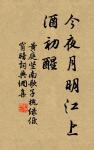 今夜月明江上
酒初醒
黄庭坚南歌子槐绿低
窗暗词典网喜